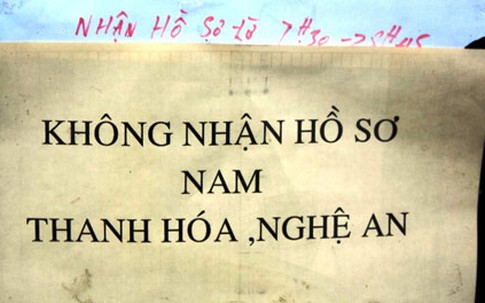 NHẬN HỒ SƠ TỪ 7H30 -> 8H45
KHÔNG NHẬN HỒ SƠ
NAM
THANH HÓA ,NGHỆ AN